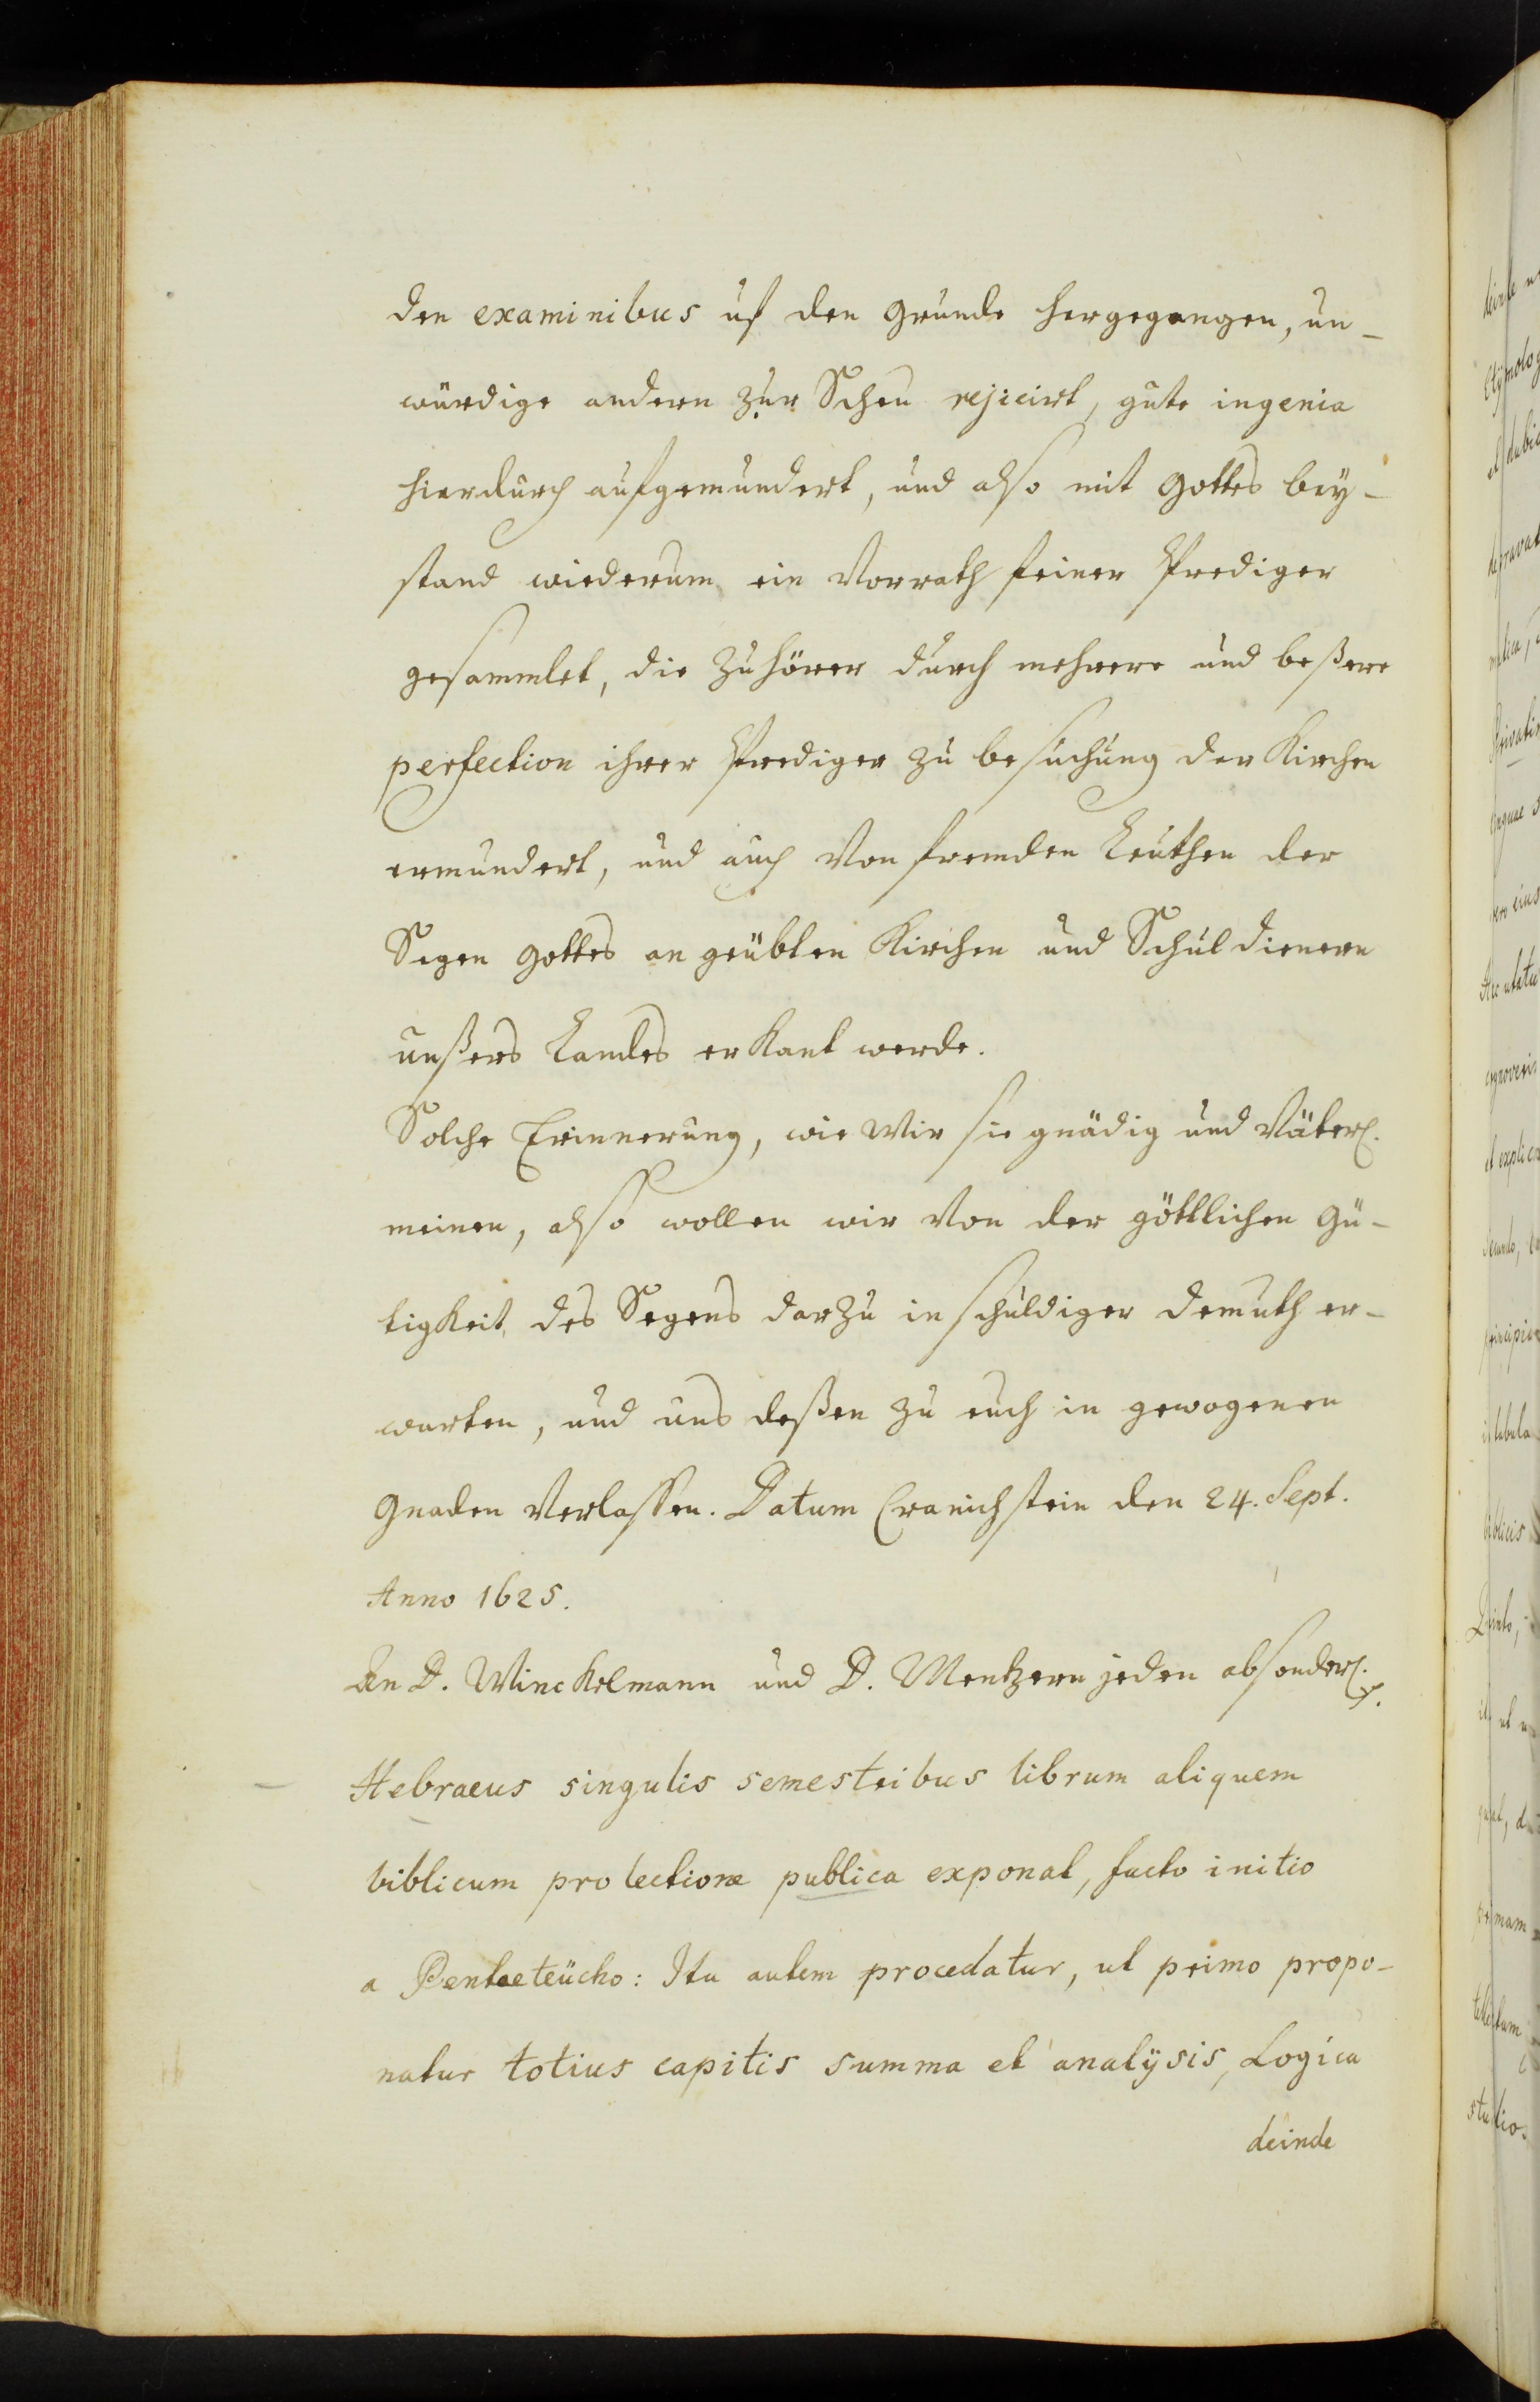 den examinibus uf den grunde hergegangen, un-
würdige andern zur Scheu rejicirt, gute ingenia
hierdurch aufgemundert, und also mit Gottes bey-
stand wiederum ein Vorrath feiner Prediger
gesammlet, die Zuhörer durch mehrere und beßere
perfection ihrer Prediger zu besuchung der Kirchen
ermundert, und auch Von fremden Leuthen der
Segen Gottes an geübten Kirchen und Schuldienern
unßers Landes erkant werde.
Solche Erinnerung, wie Wir sie gnädig und Väterl.
meinen, also wollen wir Von der göttlichen Gü-
tigkeit des Segens darzu in schuldiger demuth er-
warten, und uns deßen zu euch in gewogenen
Gnaden Verlassen. Datum Cranichstein den 24. Sept.
Anno 1625.
An D. Winckelmann und D. Mentzern jeden absonderl.
Hebraeus singulis semestribus librum aliquem
biblicum prolectione publica exponat, facto initio
a Pentateücho: Ita autem procedatur, ut primo propo-
natur totius capitis summa et analÿsis, Logica
deinde